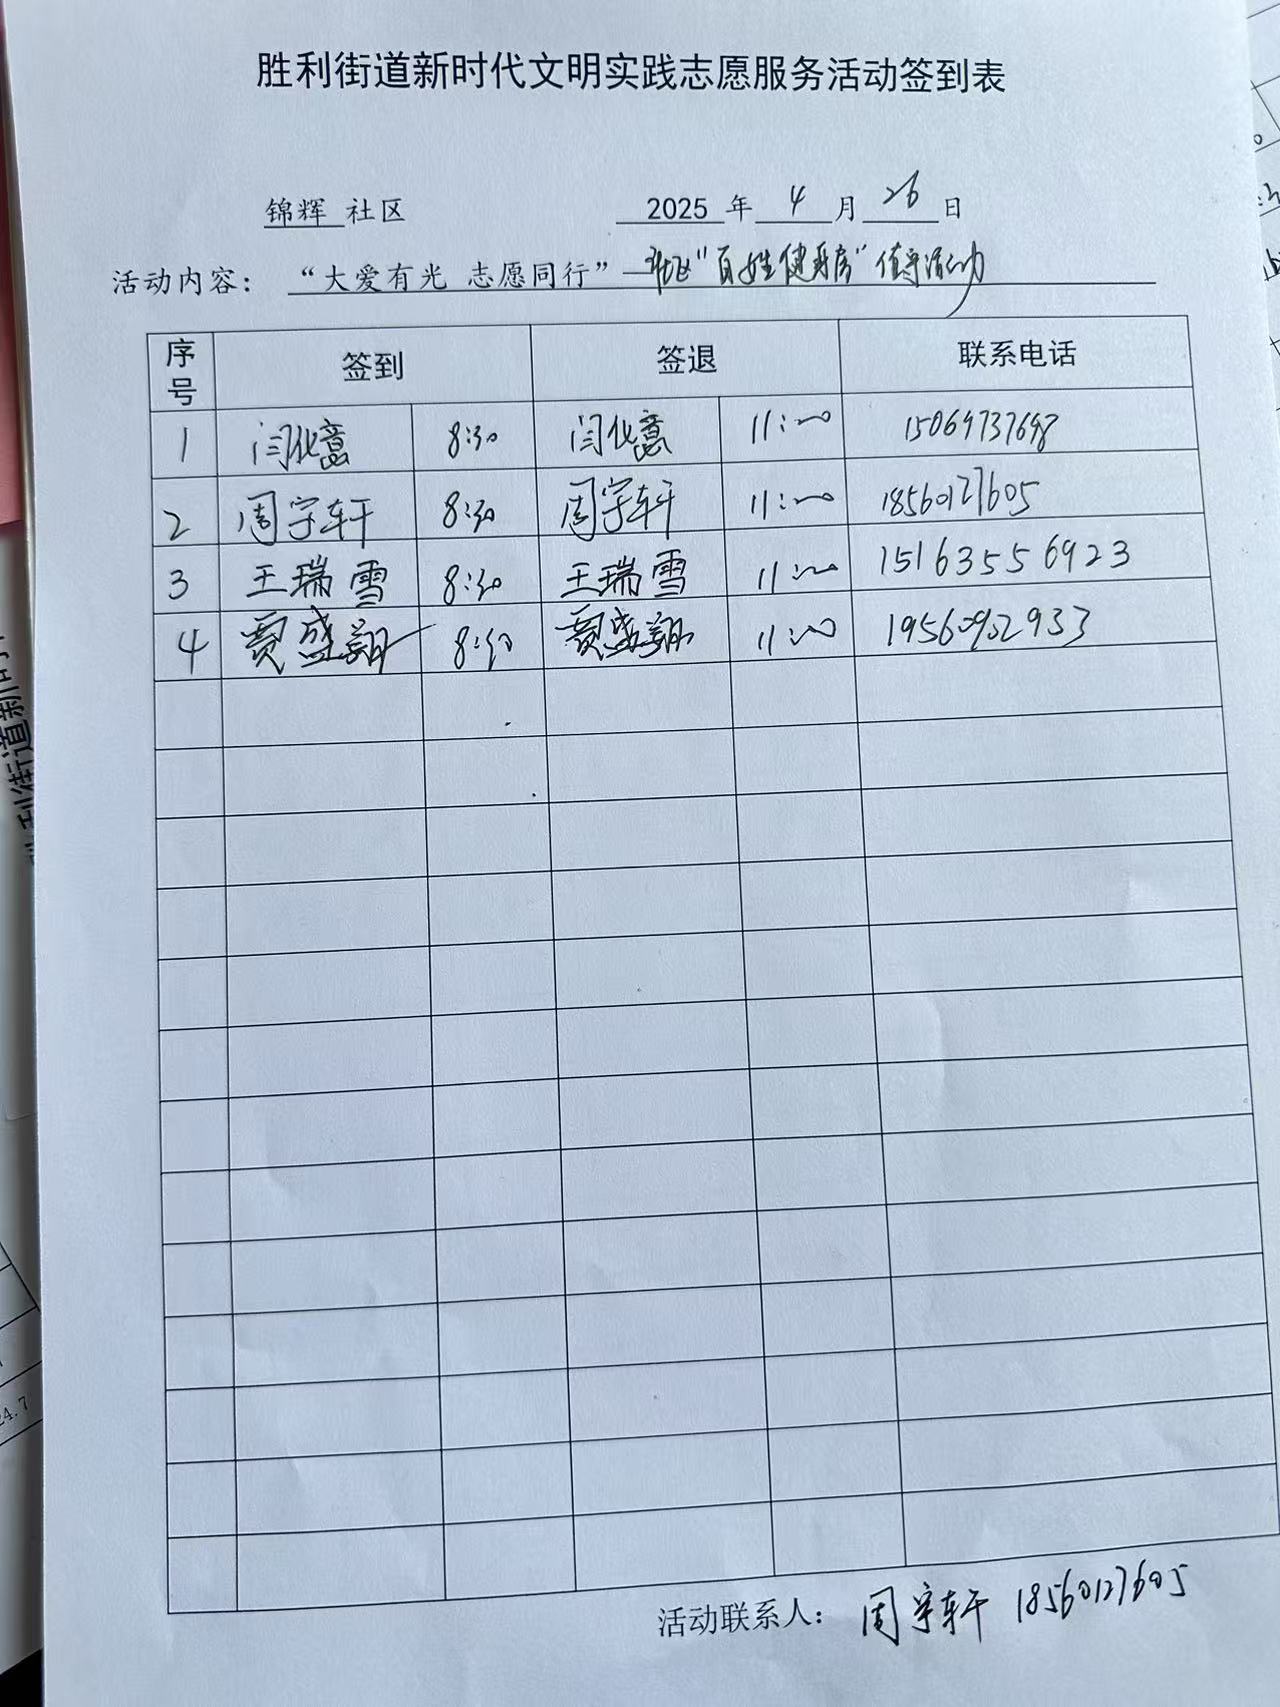 胜利街道新时代文明实践志愿服务活动签到表
锦辉 社区 2025 年 4 月 26 日
活动内容：“大爱有光 志愿同行” “百姓健身房”值守活动
序号 签到 签退 联系电话
1 闫化意 8:30 闫化意 11:00 15069737698
2 周宇轩 8:30 周宇轩 11:00 18560127605
3 王瑞雪 8:30 王瑞雪 11:00 15163556923
4 贾盛翔 8:30 贾盛翔 11:00 19560902933
活动联系人： 周宇轩 18560127605
街道新
24.7